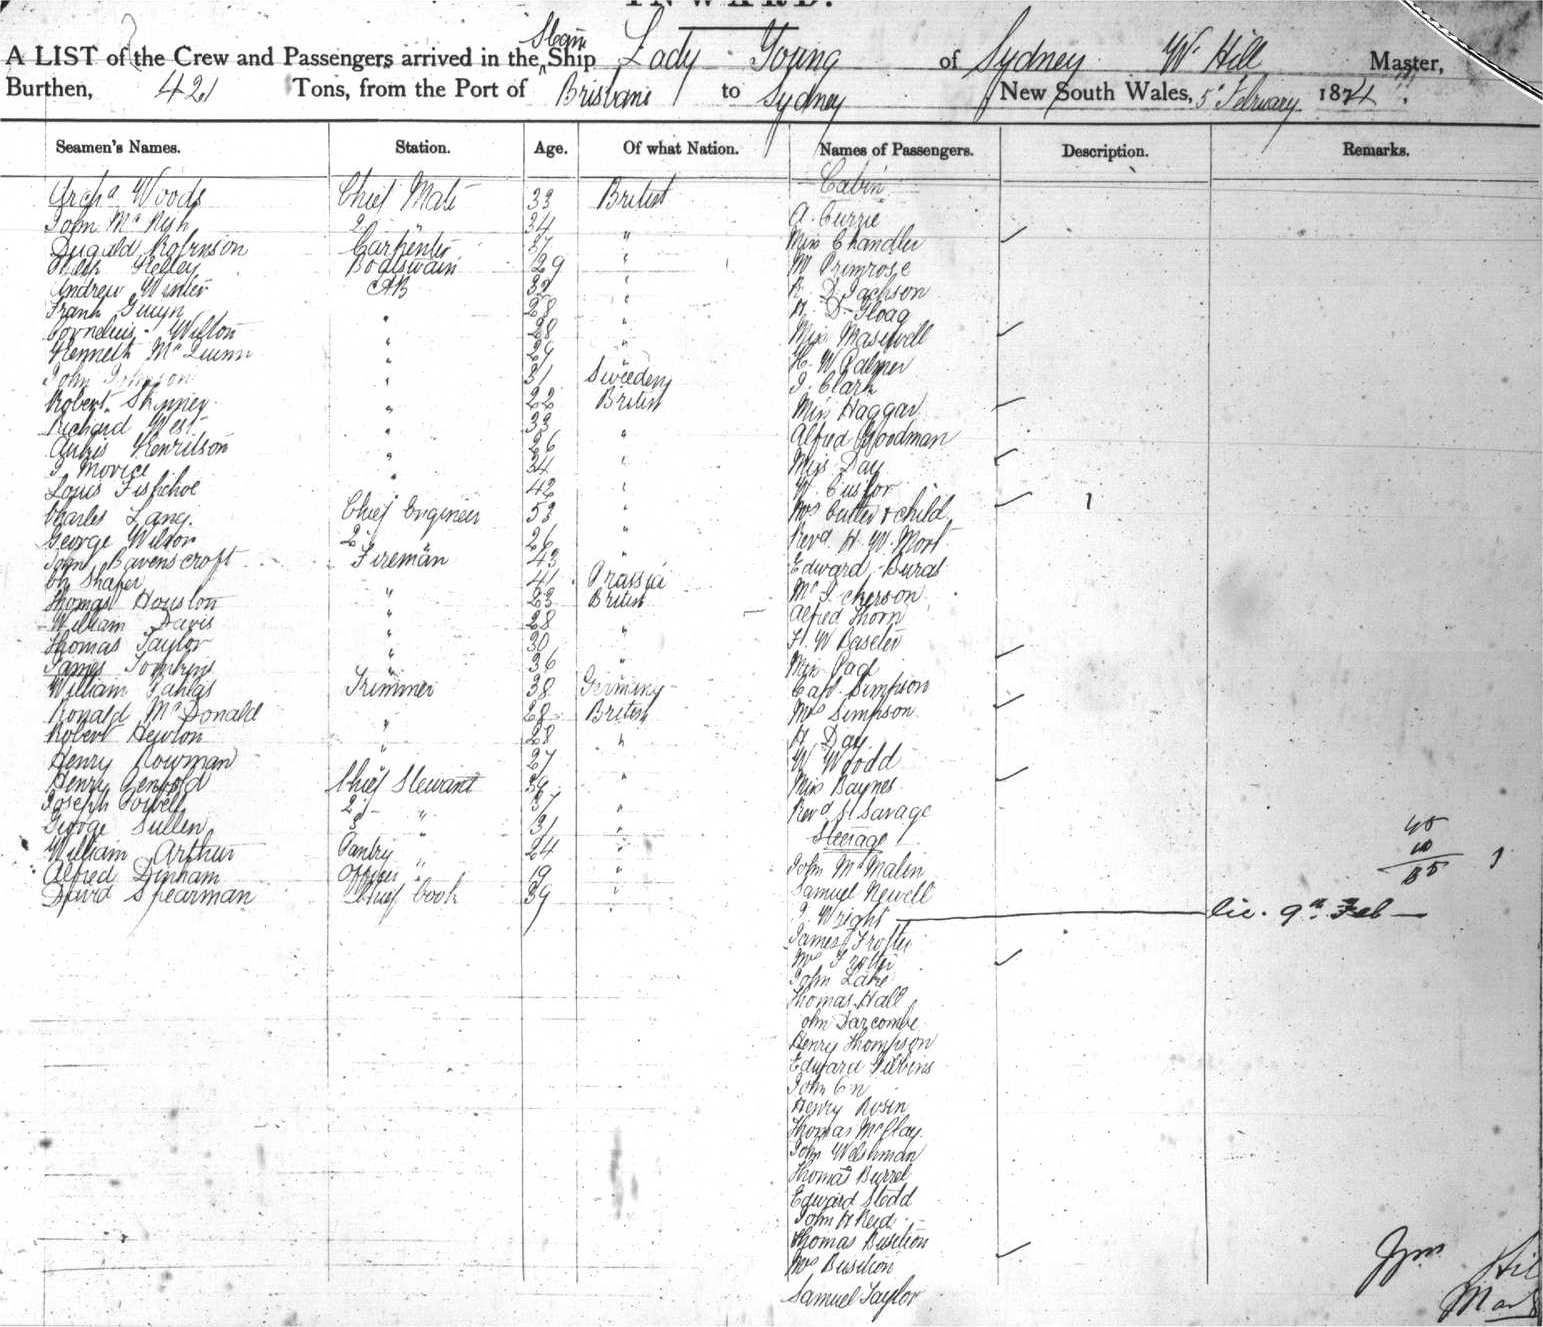 INWARD.
A LIST of the Crew and Passengers arrived in the Steam Ship Lady Young of Sydney W Hill Master,
Burthen, 421 Tons, from the Port of Brisbane to Sydney New South Wales, 5 February 1874
Seamen's Names. Station. Age. Of what Nation. Names of Passengers. Description. Remarks.
Cabin
Archd Woods Chief Mate 33 British
John Mc 2 34 " A. Currie
Dugald Robinson Carpenter 37 " Miss Chandler ✓
Kelley Boatswain 29 " M Primrose
Andrew Winter AB 32 " R D Jackson
Frank Gwyn " 28 " H D Gloag
Cornelius Wilton " 28 " Miss ✓
Kenneth Mc Quinn " 29 " H. W Palmer
John Johnson " 31 Sweeden J. Clark
Robert Skinner " 22 British Miss Haggar ✓
Richard West " 33 " Alfred Goodman
Henrilson " 26 " Miss Day ✓
J Morice " 34 " W Custor
Louis " 42 " Mrs Cutler & child ✓ 1
Charles Lang. Chief Engineer 53 " Revd H. W. Mort
George Wilson 2 26 " Edward Buras
John Ravenscroft Fireman 43 "
Ch Shafer " 41 Prassia Mc J cherson
Thomas Houston " 23 British Alfred Thorn
William Davis " 28 " H. W Baseler
Thomas Taylor " 30 " Miss ✓
James Tompkins " 36 " Capt Simpson
William Fahlas Trimmer 38 Germany Mrs Simpson ✓
Ronald McDonald " 28 British H Day
Robert Hewton " 28 " W Wodd
Henry Rowman " 27 Miss Baynes ✓
Henry Chief Steward 39 " Revd H Savage
Joseph Powell 2 " 37 " Steerage
George Sullen 3 " 31 " John McMalin
William Arthur Pantry 24 " Samuel Newell
Alfred Dinham Officers " 19 " J Wright lic. 9th Feb
David Spearman Chief Cook 39 " James Trotter
Mrs Trotter ✓
John Lake
Thomas Hall
John Darcombe
Henry Thompson
Edward Gibbins
John
Henry Rosin
Thomas McClay
John Welshman
Thomas Burrel
Edward Stedd
John H Reid
Thomas Busition
Mrs Busition ✓
Samuel Taylor
45
10
1
Wm Hil
Mas